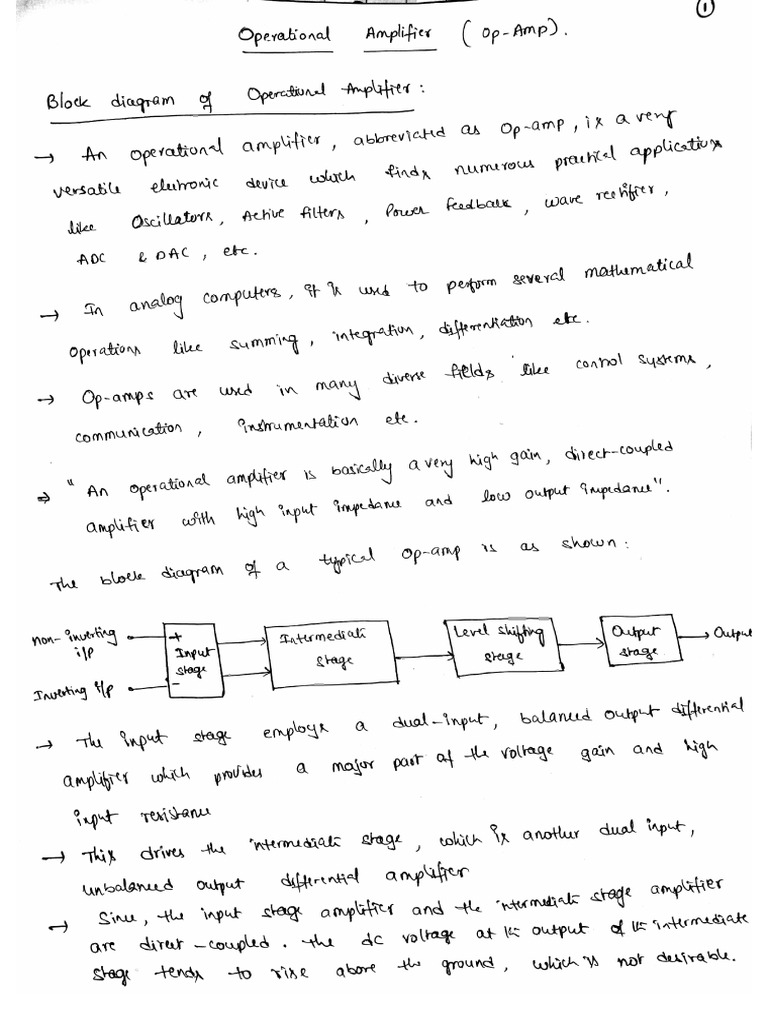 1
Operational Amplifier (Op-Amp).
Block diagram of Operational Amplifier:
→ An operational amplifier, abbreviated as Op-amp, is a very
versatile electronic device which finds numerous practical applications
like Oscillators, Active filters, Power feedback, wave rectifier,
ADC & DAC, etc.
→ In analog computers, it is used to perform several mathematical
operations like summing, integration, differentiation etc.
→ Op-amps are used in many diverse fields like control systems,
communication, instrumentation etc.
⇒ "An operational amplifier is basically a very high gain, direct-coupled
amplifier with high input impedance and low output impedance".
The block diagram of a typical Op-amp is as shown:
non-inverting i/p
Inverting i/p
+ Input stage -
Intermediate stage
Level shifting stage
Output stage
Output
→ The input stage employs a dual-input, balanced output differential
amplifier which provides a major part of the voltage gain and high
input resistance
→ This drives the intermediate stage, which is another dual input,
unbalanced output differential amplifier
→ Since, the input stage amplifier and the intermediate stage amplifier
are direct-coupled. the dc voltage at the output of the intermediate
stage tends to rise above the ground, which is not desirable.